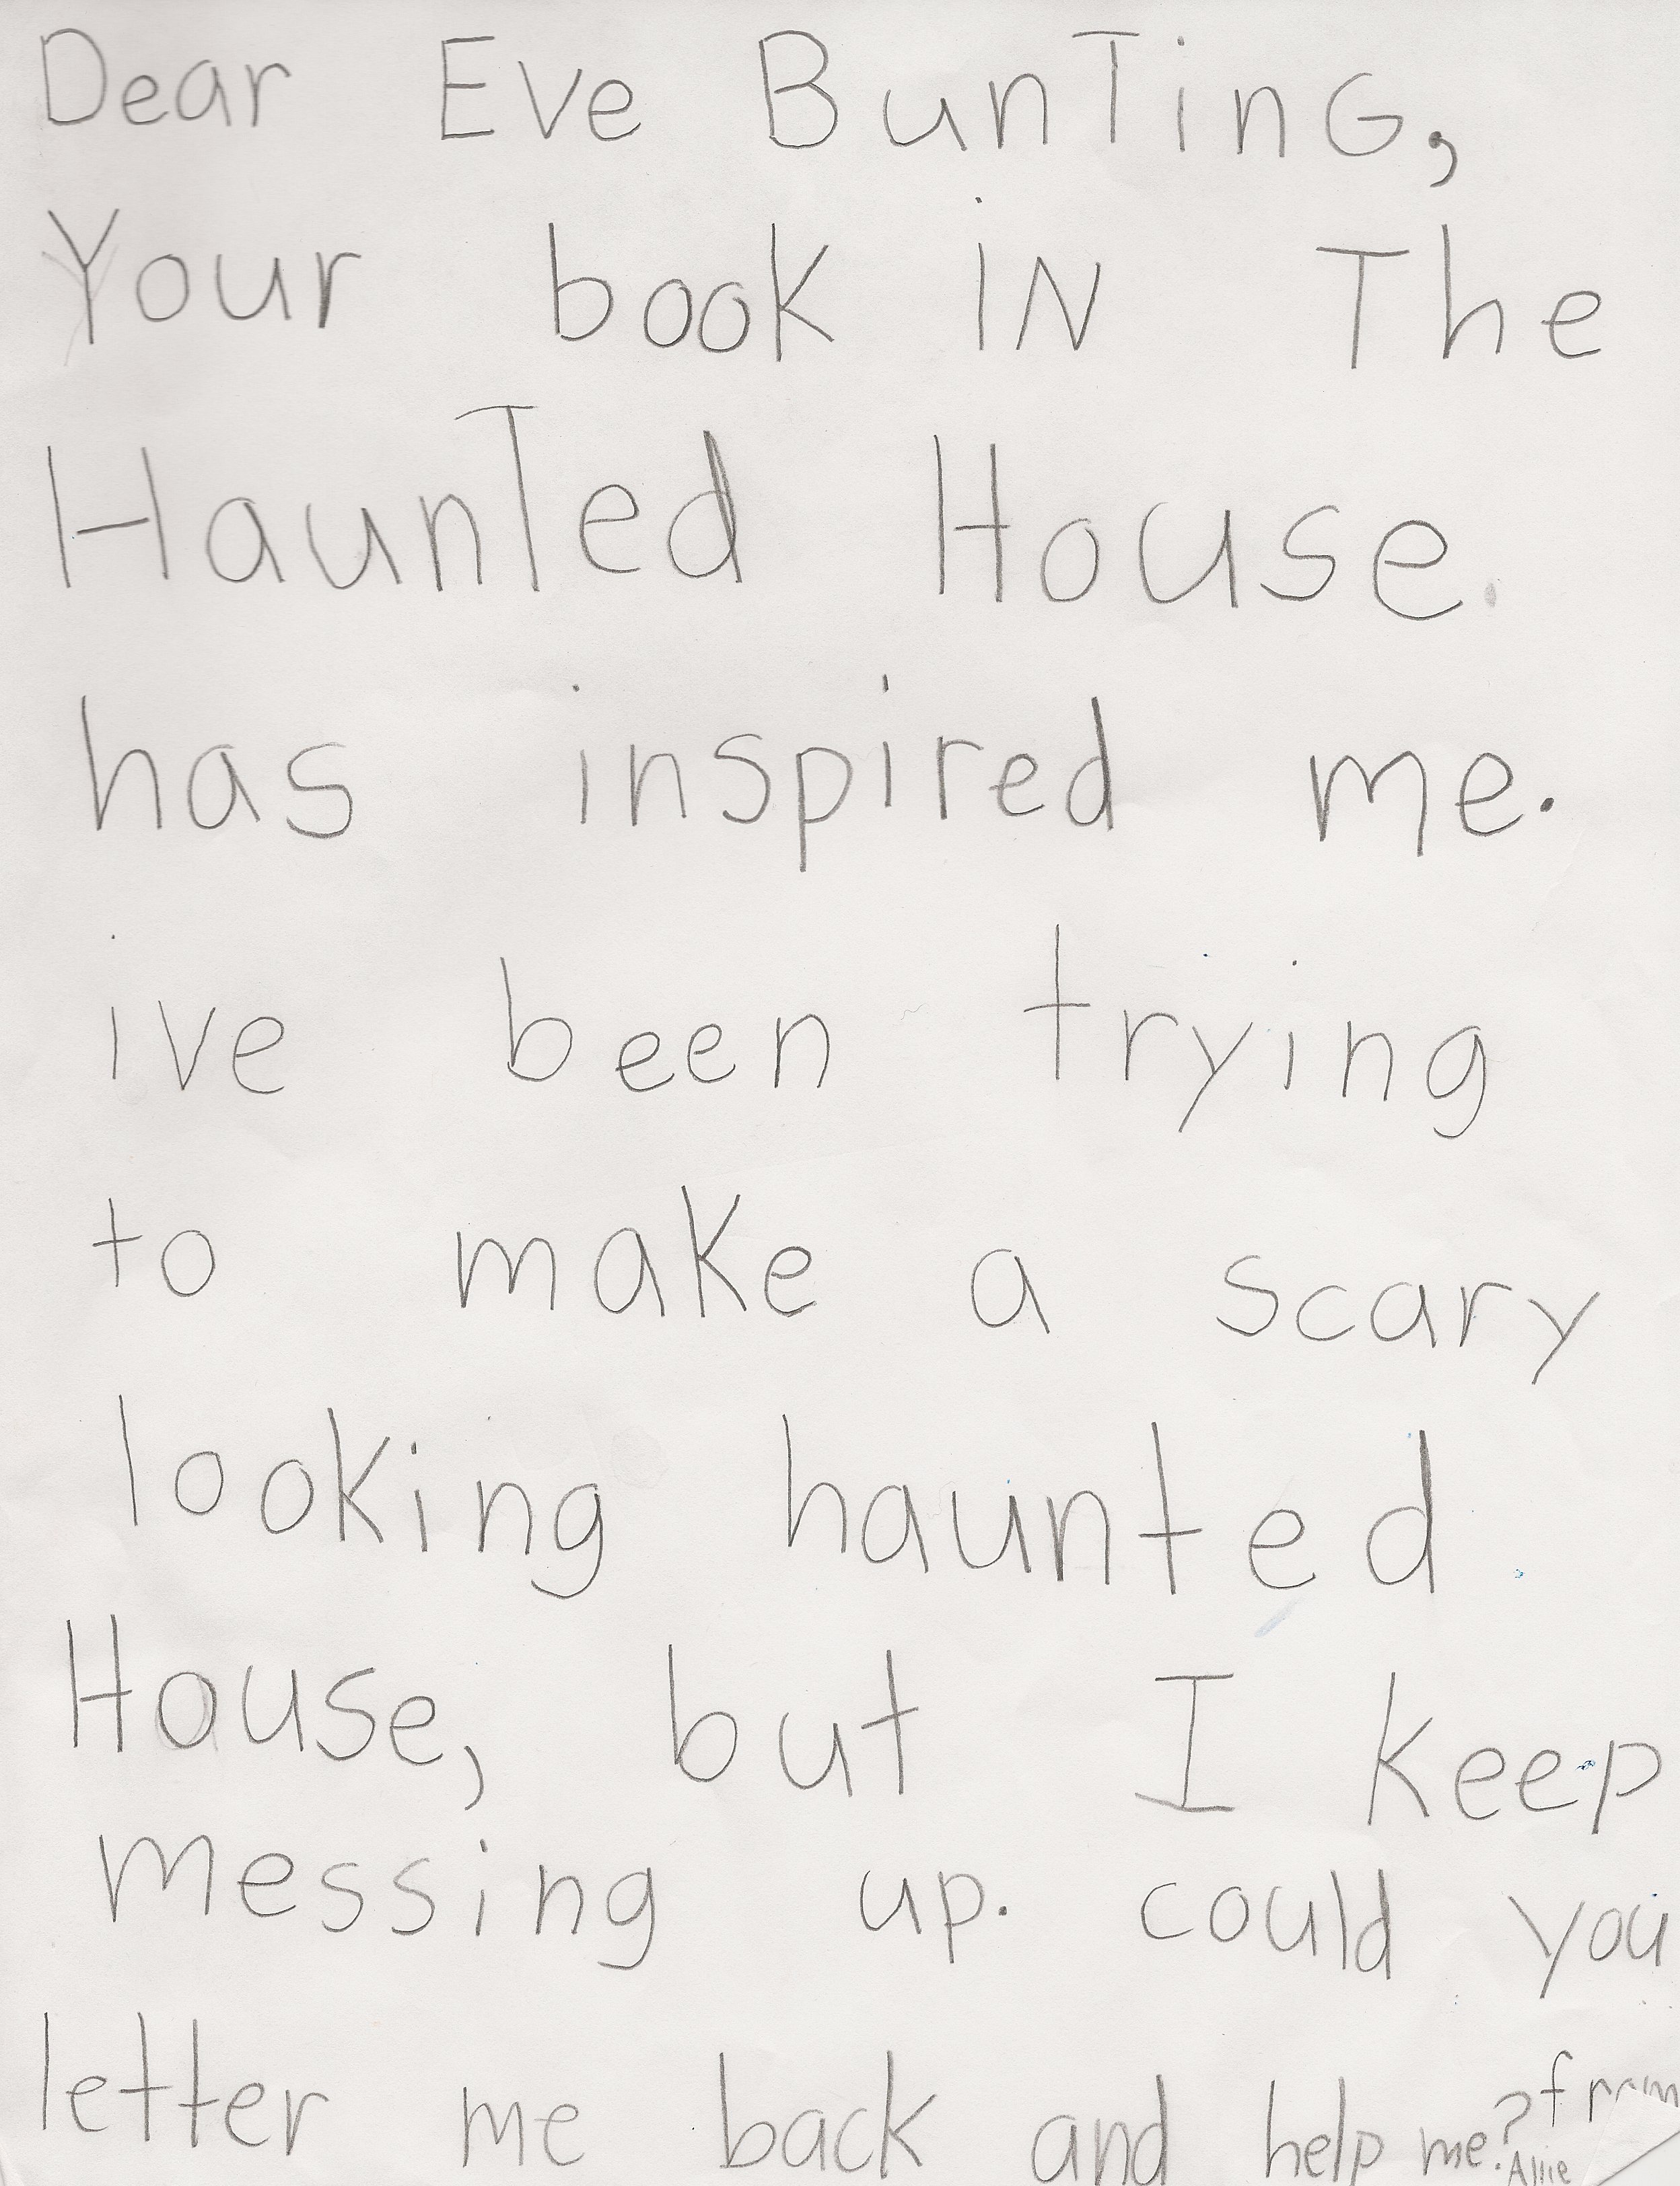 Dear Eve BunTinG,
Your book iN The
HaunTed House.
has inspired me.
ive been trying
to make a scary
looking haunted
House, but I keep
messing up. could you
letter me back and help me? from
Allie